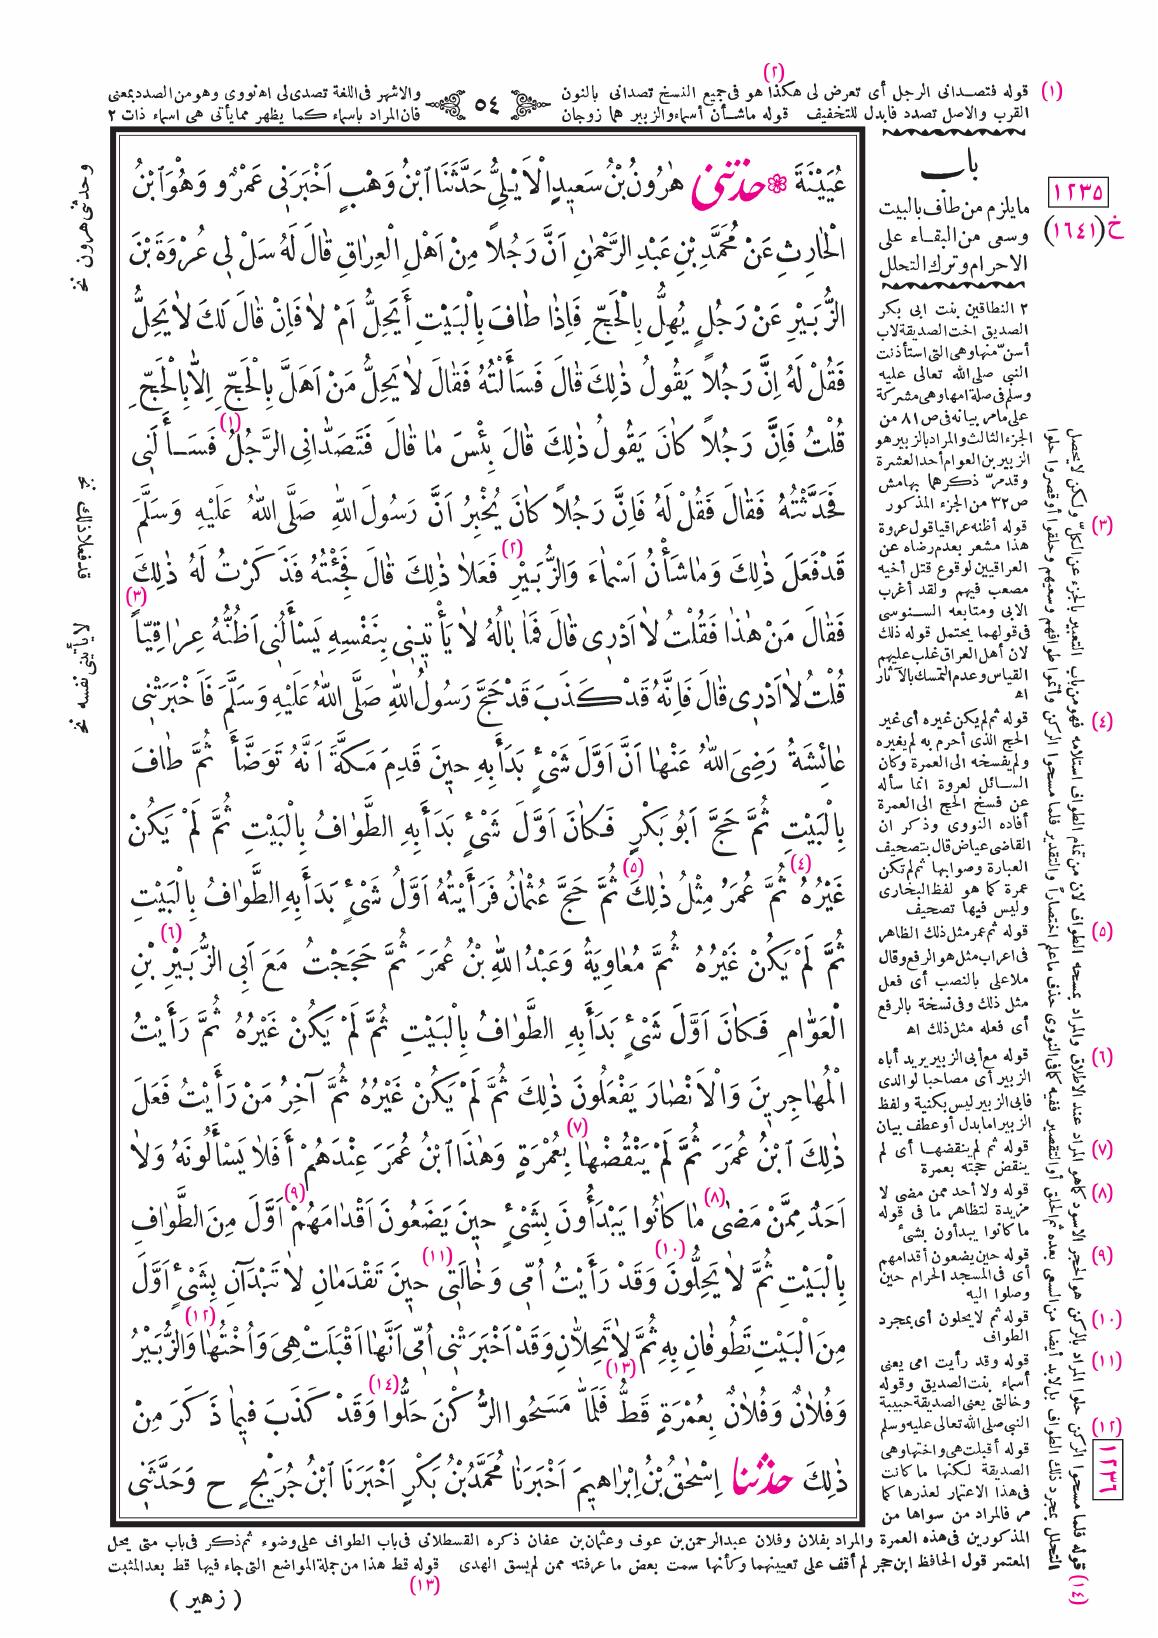 (١) قوله فتصدانى الرجل أى تعرض لى هكذا (٢) هو فى جميع النسخ تصدانى بالنون والاشهر فى اللغة تصدى لى اه نووى وهو من الصدد بمعنى
القرب والاصل تصدد فابدل للتخفيف قوله ماشأن أسماء والزبير هما زوجان فان المراد باسماء كما يظهر مما يأتى هى اسماء ذات ٢
٥٤
عُيَيْنَةَ ❁ حَدَّثَنِي هٰرُونُ بْنُ سَعِيدٍ الْاَيْلِيُّ حَدَّثَنَا ابْنُ وَهْبٍ اَخْبَرَنِي عَمْرٌو وَهُوَ ابْنُ
الْحَارِثِ عَنْ مُحَمَّدِ بْنِ عَبْدِ الرَّحْمٰنِ اَنَّ رَجُلاً مِنْ اَهْلِ الْعِرَاقِ قَالَ لَهُ سَلْ لِي عُرْوَةَ بْنَ
الزُّبَيْرِ عَنْ رَجُلٍ يُهِلُّ بِالْحَجِّ فَاِذَا طَافَ بِالْبَيْتِ أَيَحِلُّ اَمْ لاَ فَاِنْ قَالَ لَكَ لاَ يَحِلُّ
فَقُلْ لَهُ اِنَّ رَجُلاً يَقُولُ ذٰلِكَ قَالَ فَسَأَلْتُهُ فَقَالَ لاَ يَحِلُّ مَنْ اَهَلَّ بِالْحَجِّ اِلاَّ بِالْحَجِّ
قُلْتُ فَاِنَّ رَجُلاً كَانَ يَقُولُ ذٰلِكَ قَالَ بِئْسَ مَا قَالَ فَتَصَدَّانِى الرَّجُلُ (١) فَسَأَلَنِى
فَحَدَّثْتُهُ فَقَالَ فَقُلْ لَهُ فَاِنَّ رَجُلاً كَانَ يُخْبِرُ اَنَّ رَسُولَ اللهِ صَلَّى اللهُ عَلَيْهِ وَسَلَّمَ
قَدْ فَعَلَ ذٰلِكَ وَمَا شَأْنُ اَسْمَاءَ وَالزُّبَيْرِ (٢) فَعَلاَ ذٰلِكَ قَالَ فَجِئْتُهُ فَذَكَرْتُ لَهُ ذٰلِكَ
فَقَالَ مَنْ هٰذَا فَقُلْتُ لاَ اَدْرِى قَالَ فَمَا بَالُهُ لاَ يَأْتِينِى بِنَفْسِهِ يَسْأَلُنِى اَظُنُّهُ عِرَاقِيّاً (٣)
قُلْتُ لاَ اَدْرِى قَالَ فَاِنَّهُ قَدْ كَذَبَ قَدْ حَجَّ رَسُولُ اللهِ صَلَّى اللهُ عَلَيْهِ وَسَلَّمَ فَاَخْبَرَتْنِى
عَائِشَةُ رَضِىَ اللهُ عَنْهَا اَنَّ اَوَّلَ شَىْءٍ بَدَأَ بِهِ حِينَ قَدِمَ مَكَّةَ اَنَّهُ تَوَضَّأَ ثُمَّ طَافَ
بِالْبَيْتِ ثُمَّ حَجَّ اَبُو بَكْرٍ فَكَانَ اَوَّلَ شَىْءٍ بَدَأَ بِهِ الطَّوَافُ بِالْبَيْتِ ثُمَّ لَمْ يَكُنْ
غَيْرُهُ (٤) ثُمَّ عُمَرُ مِثْلُ ذٰلِكَ (٥) ثُمَّ حَجَّ عُثْمَانُ فَرَأَيْتُهُ اَوَّلُ شَىْءٍ بَدَأَ بِهِ الطَّوَافُ بِالْبَيْتِ
ثُمَّ لَمْ يَكُنْ غَيْرُهُ ثُمَّ مُعَاوِيَةُ وَعَبْدُ اللهِ بْنُ عُمَرَ ثُمَّ حَجَجْتُ مَعَ اَبِى الزُّبَيْرِ (٦) بْنِ
الْعَوَّامِ فَكَانَ اَوَّلَ شَىْءٍ بَدَأَ بِهِ الطَّوَافُ بِالْبَيْتِ ثُمَّ لَمْ يَكُنْ غَيْرُهُ ثُمَّ رَأَيْتُ
الْمُهَاجِرِينَ وَالْاَنْصَارَ يَفْعَلُونَ ذٰلِكَ ثُمَّ لَمْ يَكُنْ غَيْرُهُ ثُمَّ آخِرُ مَنْ رَأَيْتُ فَعَلَ
ذٰلِكَ ابْنُ عُمَرَ ثُمَّ لَمْ يَنْقُضْهَا (٧) بِعُمْرَةٍ وَهٰذَا ابْنُ عُمَرَ عِنْدَهُمْ أَفَلاَ يَسْأَلُونَهُ وَلاَ
اَحَدٌ مِمَّنْ مَضٰى (٨) مَا كَانُوا يَبْدَأُونَ بِشَىْءٍ حِينَ يَضَعُونَ اَقْدَامَهُمْ (٩) اَوَّلَ مِنَ الطَّوَافِ
بِالْبَيْتِ ثُمَّ لاَ يَحِلُّونَ (١٠) وَقَدْ رَأَيْتُ اُمِّى وَخَالَتِى (١١) حِينَ تَقْدَمَانِ لاَ تَبْدَآنِ بِشَىْءٍ اَوَّلَ
مِنَ الْبَيْتِ تَطُوفَانِ بِهِ ثُمَّ لاَ تَحِلاَّنِ وَقَدْ اَخْبَرَتْنِى اُمِّى اَنَّهَا اَقْبَلَتْ هِىَ وَاُخْتُهَا (١٢) وَالزُّبَيْرُ
وَفُلاَنٌ وَفُلاَنٌ بِعُمْرَةٍ قَطُّ (١٣) فَلَمَّا مَسَحُوا الرُّكْنَ حَلُّوا (١٤) وَقَدْ كَذَبَ فِيمَا ذَكَرَ مِنْ
ذٰلِكَ حَدَّثَنَا اِسْحٰقُ بْنُ اِبْرَاهِيمَ اَخْبَرَنَا مُحَمَّدُ بْنُ بَكْرٍ اَخْبَرَنَا ابْنُ جُرَيْجٍ ح وَحَدَّثَنِى
باب
مايلزم من طاف بالبيت
وسعى من البقاء على
الاحرام وترك التحلل
١٢٣٥
خ (١٦٤١)
٢ النطاقين بنت ابى بكر
الصديق اخت الصديقة لاب
أسن منها وهى التى استأذنت
النبى صلى الله تعالى عليه
وسلم فى صلة امها وهى مشركة
على مامر بيانه فى ص ٨١ من
الجزء الثالث والمراد بالزبير هو
الزبير بن العوام أحد العشرة
وقدمر ذكرهما بهامش
ص ٣٣ من الجزء المذكور
(٣) قوله أظنه عراقيا قول عروة
هذا مشعر بعدم رضاه عن
العراقيين لوقوع قتل أخيه
مصعب فيهم ولقد أغرب
الابى ومتابعه السنوسى
فى قولهما يحتمل قوله ذلك
لان أهل العراق غلب عليهم
القياس وعدم التمسك بالآثار
اه
(٤) قوله ثم لم يكن غيره أى غير
الحج الذى أحرم به لم يغيره
ولم يفسخه الى العمرة وكان
السائل لعروة انما سأله
عن فسخ الحج الى العمرة
أفاده النووى وذكر ان
القاضى عياض قال بتصحيف
العبارة وصوابها ثم لم تكن
عمرة كما هو لفظ البخارى
وليس فيها تصحيف
(٥) قوله ثم عمر مثل ذلك الظاهر
فى اعراب مثل هو الرفع وقال
ملاعلى بالنصب أى فعل
مثل ذلك وفى نسخة بالرفع
أى فعله مثل ذلك اه
(٦) قوله مع أبى الزبير يريد أباه
الزبير أى مصاحبا لوالدى
فابى الزبير ليس بكنية ولفظ
الزبير امابدل أو عطف بيان
(٧) قوله ثم لم ينقضها أى لم
ينقض حجته بعمرة
(٨) قوله ولا أحد ممن مضى لا
مزيدة لتظاهر ما فى قوله
ما كانوا يبدأون بشىء
(٩) قوله حين يضعون أقدامهم
أى فى المسجد الحرام حين
وصلوا اليه
(١٠) قوله ثم لا يحلون أى بمجرد
الطواف
(١١) قوله وقد رأيت امى يعنى
أسماء بنت الصديق وقوله
وخالتى يعنى الصديقة حبيبة
النبى صلى الله تعالى عليه وسلم
(١٢) قوله أقبلت هى واختها وهى
الصديقة لكنها ماكانت
فى هذا الاعتمار لعذرها كما
مر فالمراد من سواها من
١٢٣٦
المذكورين فى هذه العمرة والمراد بفلان وفلان عبدالرحمن بن عوف وعثمان بن عفان ذكره القسطلانى فى باب الطواف على وضوء ثم ذكر فى باب متى يحل
المعتمر قول الحافظ ابن حجر لم أقف على تعيينهما وكأنها سمت بعض ما عرفته ممن لم يسق الهدى قوله قط هذا من جملة المواضع التى جاء فيها قط بعد المثبت
(١٣)
(١٤) قوله فلما مسحوا الركن حلوا المراد بالركن هو الحجر الاسود كما هو المراد عند الاطلاق والمراد بمسحه الطواف لان من تمام الطواف استلامه فهو من باب التعبير بالجزء عن الكل ولكن لا يحصل
التحلل بمجرد ذلك الطواف بل لابد أيضا من السعى بعده ثم الحلق أو التقصير ففيه كما فى النووى حذف ماعلم اختصاراً والتقدير فلما مسحوا الركن وأتموا طوافهم وسعيهم وحلقوا أو قصروا حلوا
( زهير )
وحدثنى هرون نخ
قد فعلا ذلك نخ
لا يأتينى نفسه نخ